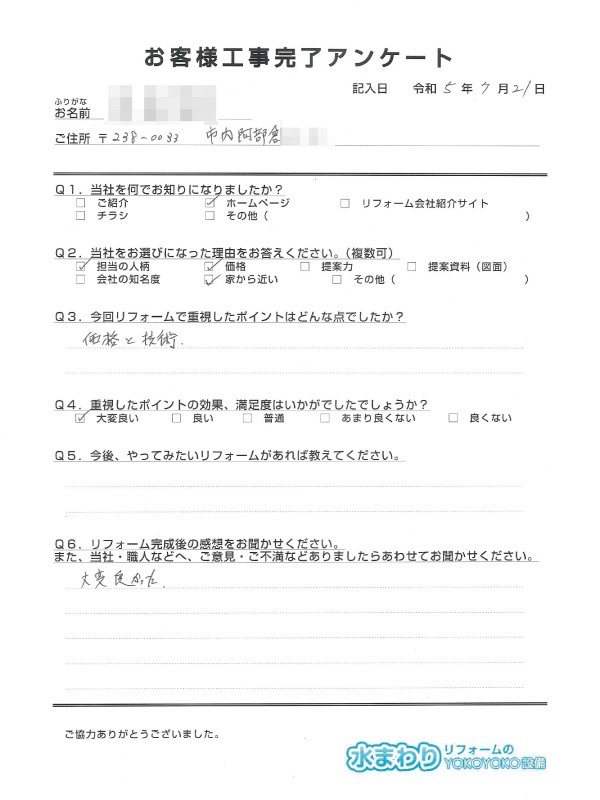 お客様工事完了アンケート
記入日 令和 5 年 7 月 21 日
ふりがな
お名前
ご住所 〒238-0033 市内阿部倉
Q1. 当社を何でお知りになりましたか?
□ ご紹介 ☑ ホームページ □ リフォーム会社紹介サイト
□ チラシ □ その他( )
Q2. 当社をお選びになった理由をお答えください。(複数可)
☑ 担当の人柄 ☑ 価格 □ 提案力 □ 提案資料(図面)
□ 会社の知名度 ☑ 家から近い □ その他( )
Q3. 今回リフォームで重視したポイントはどんな点でしたか?
価格と技術.
Q4. 重視したポイントの効果、満足度はいかがでしたでしょうか?
☑ 大変良い □ 良い □ 普通 □ あまり良くない □ 良くない
Q5. 今後、やってみたいリフォームがあれば教えてください。
Q6. リフォーム完成後の感想をお聞かせください。
また、当社・職人などへ、ご意見・ご不満などありましたらあわせてお聞かせください。
大変良かった.
ご協力ありがとうございました。
水まわりリフォームのYOKOYOKO設備